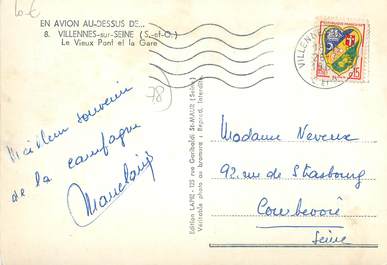 10 €
EN AVION AU-DESSUS DE...
8. VILLENNES-sur-SEINE (S.-et-O.)
Le Vieux Pont et la Gare
78)
Meilleur souvenir
de la campagne
Edition LAPIE - 125 rue Garibaldi St-MAUR (Seine)
Véritable photo au bromure : Reprod. Interdite
VILLENN
0,15
Madame Neveux
92, rue de Strasbourg
Courbevoie
Seine